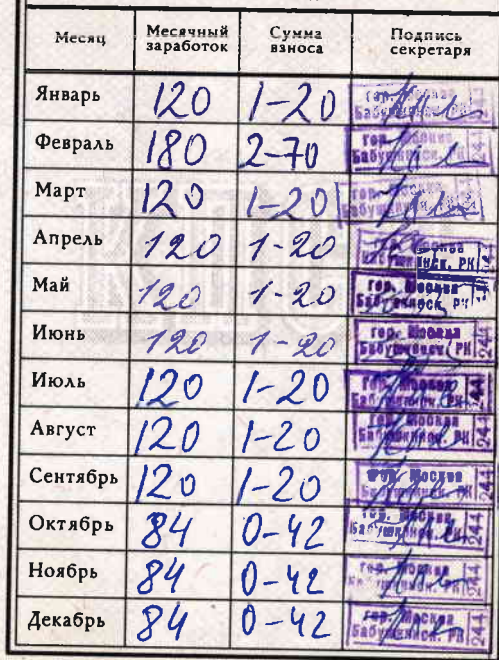 Месяц Месячный заработок Сумма взноса Подпись секретаря
Январь 120 1-20 гор. Москва Бабушкинск. РК 244
Февраль 180 2-70 гор. Москва Бабушкинск. РК 244
Март 120 1-20 гор. Москва Бабушкинск. РК 244
Апрель 120 1-20 Москва инск. РК 244
Май 120 1-20 гор. Москва Бабушкинск. РК 244
Июнь 120 1-20 гор. Москва Бабушкинск. РК 244
Июль 120 1-20 гор. Москва Бабушкинск. РК 244
Август 120 1-20 гор. Москва Бабушкинск. РК 244
Сентябрь 120 1-20 гор. Москва Бабушкинск. РК 244
Октябрь 84 0-42 гор. Москва Бабушкинск. РК 244
Ноябрь 84 0-42 гор. Москва Бабушкинск. РК 244
Декабрь 84 0-42 гор. Москва Бабушкинск. РК 244